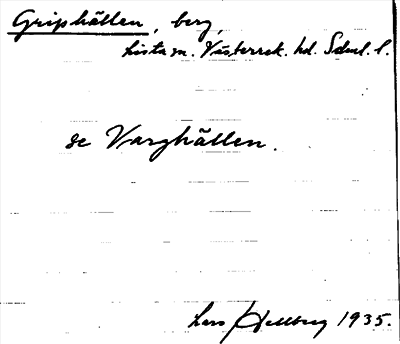 Griphällen, berg,
Lista sn. Västerrek. hd. Södml. l.
se Varghällen.
Lars Hellberg 1935.